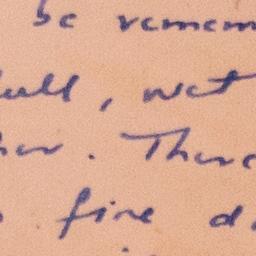 be remem
ull, wet
her. There
fine d